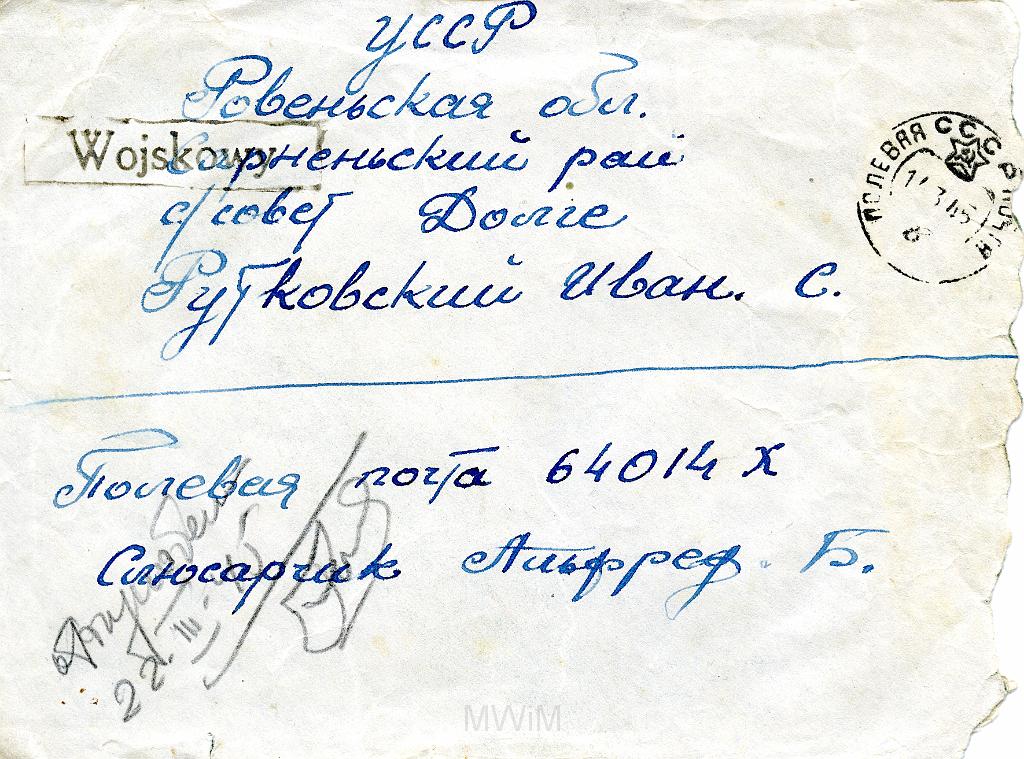 УССР
Ровеньская обл.
Wojskowy
Сарненьский рай
с/совет Долге
Рутковский Иван. С.
ПОЛЕВАЯ СССР ПОЧТА
3 45
Полевая почта 64014 Х
Слюсарчик Альфред. Б.
22. III.
MWiM